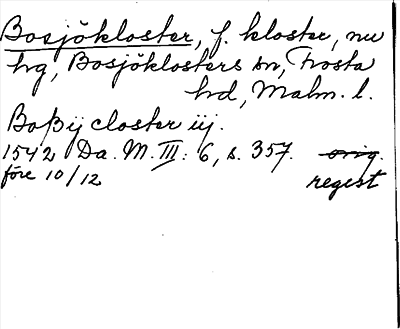 Bosjökloster, f. kloster, nu
hg, Bosjöklosters sn, Frosta
hd, Malm. l.
Boßij closter iij.
1542 Da. M. III: 6, s. 357. orig.
före 10/12 regest